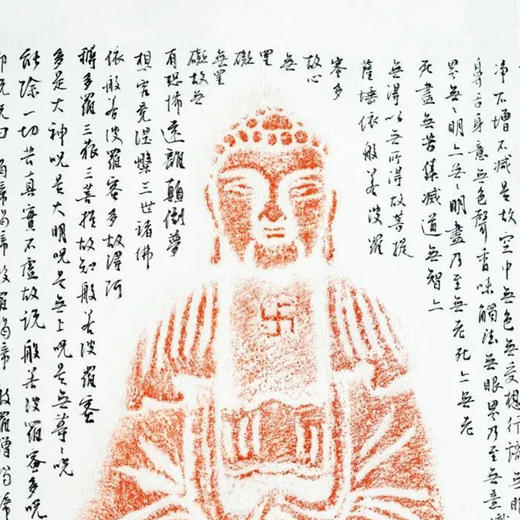 淨不增不減是故空中無色無受想行識無眼
鼻舌身意無色聲香味觸法無眼界乃至無意識
界無〻明亦無〻明盡乃至無老死亦無老
死盡無苦集滅道無智亦
無得以無所得故菩提
薩埵依般若波羅
蜜多
故心
無
罣
礙
無罣
礙故無
有恐怖遠離顛倒夢
想究竟涅槃三世諸佛
依般若波羅蜜多故得阿
耨多羅三藐三菩提故知般若波羅蜜
多是大神咒是大明咒是無上咒是無等〻咒
能除一切苦真實不虛故說般若波羅蜜多咒
即說咒曰揭帝揭帝般羅揭帝般羅僧揭帝
卍